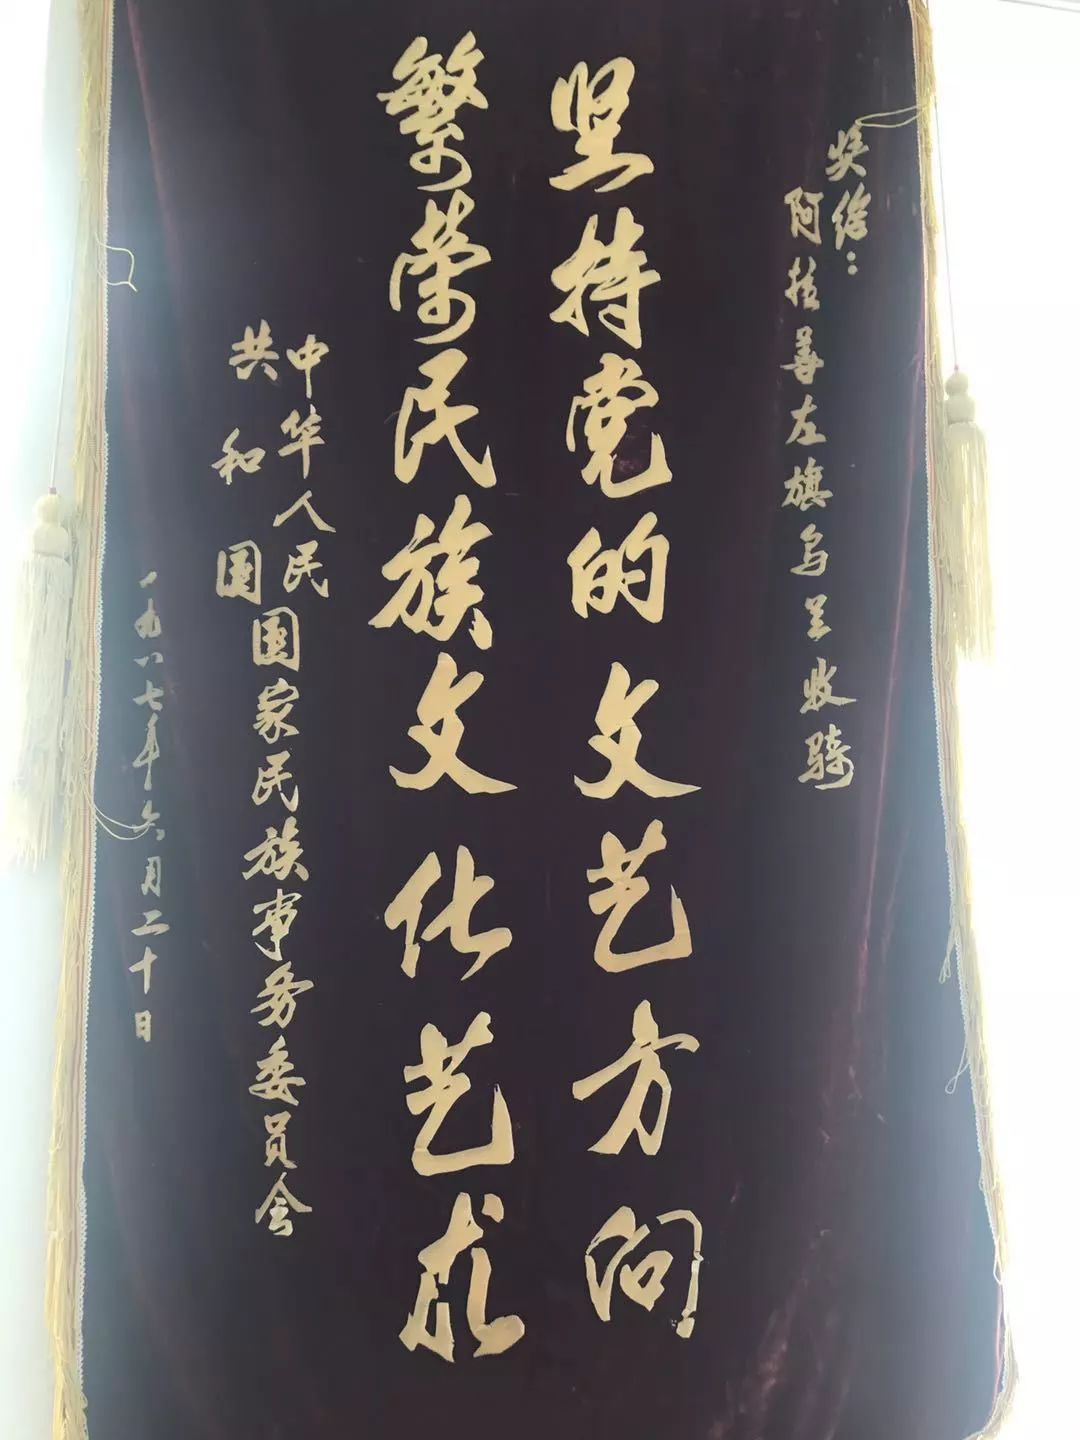 奖给：
阿拉善左旗乌兰牧骑
坚持党的文艺方向
繁荣民族文化艺术
中华人民
共和国
国家民族事务委员会
一九八七年六月二十日